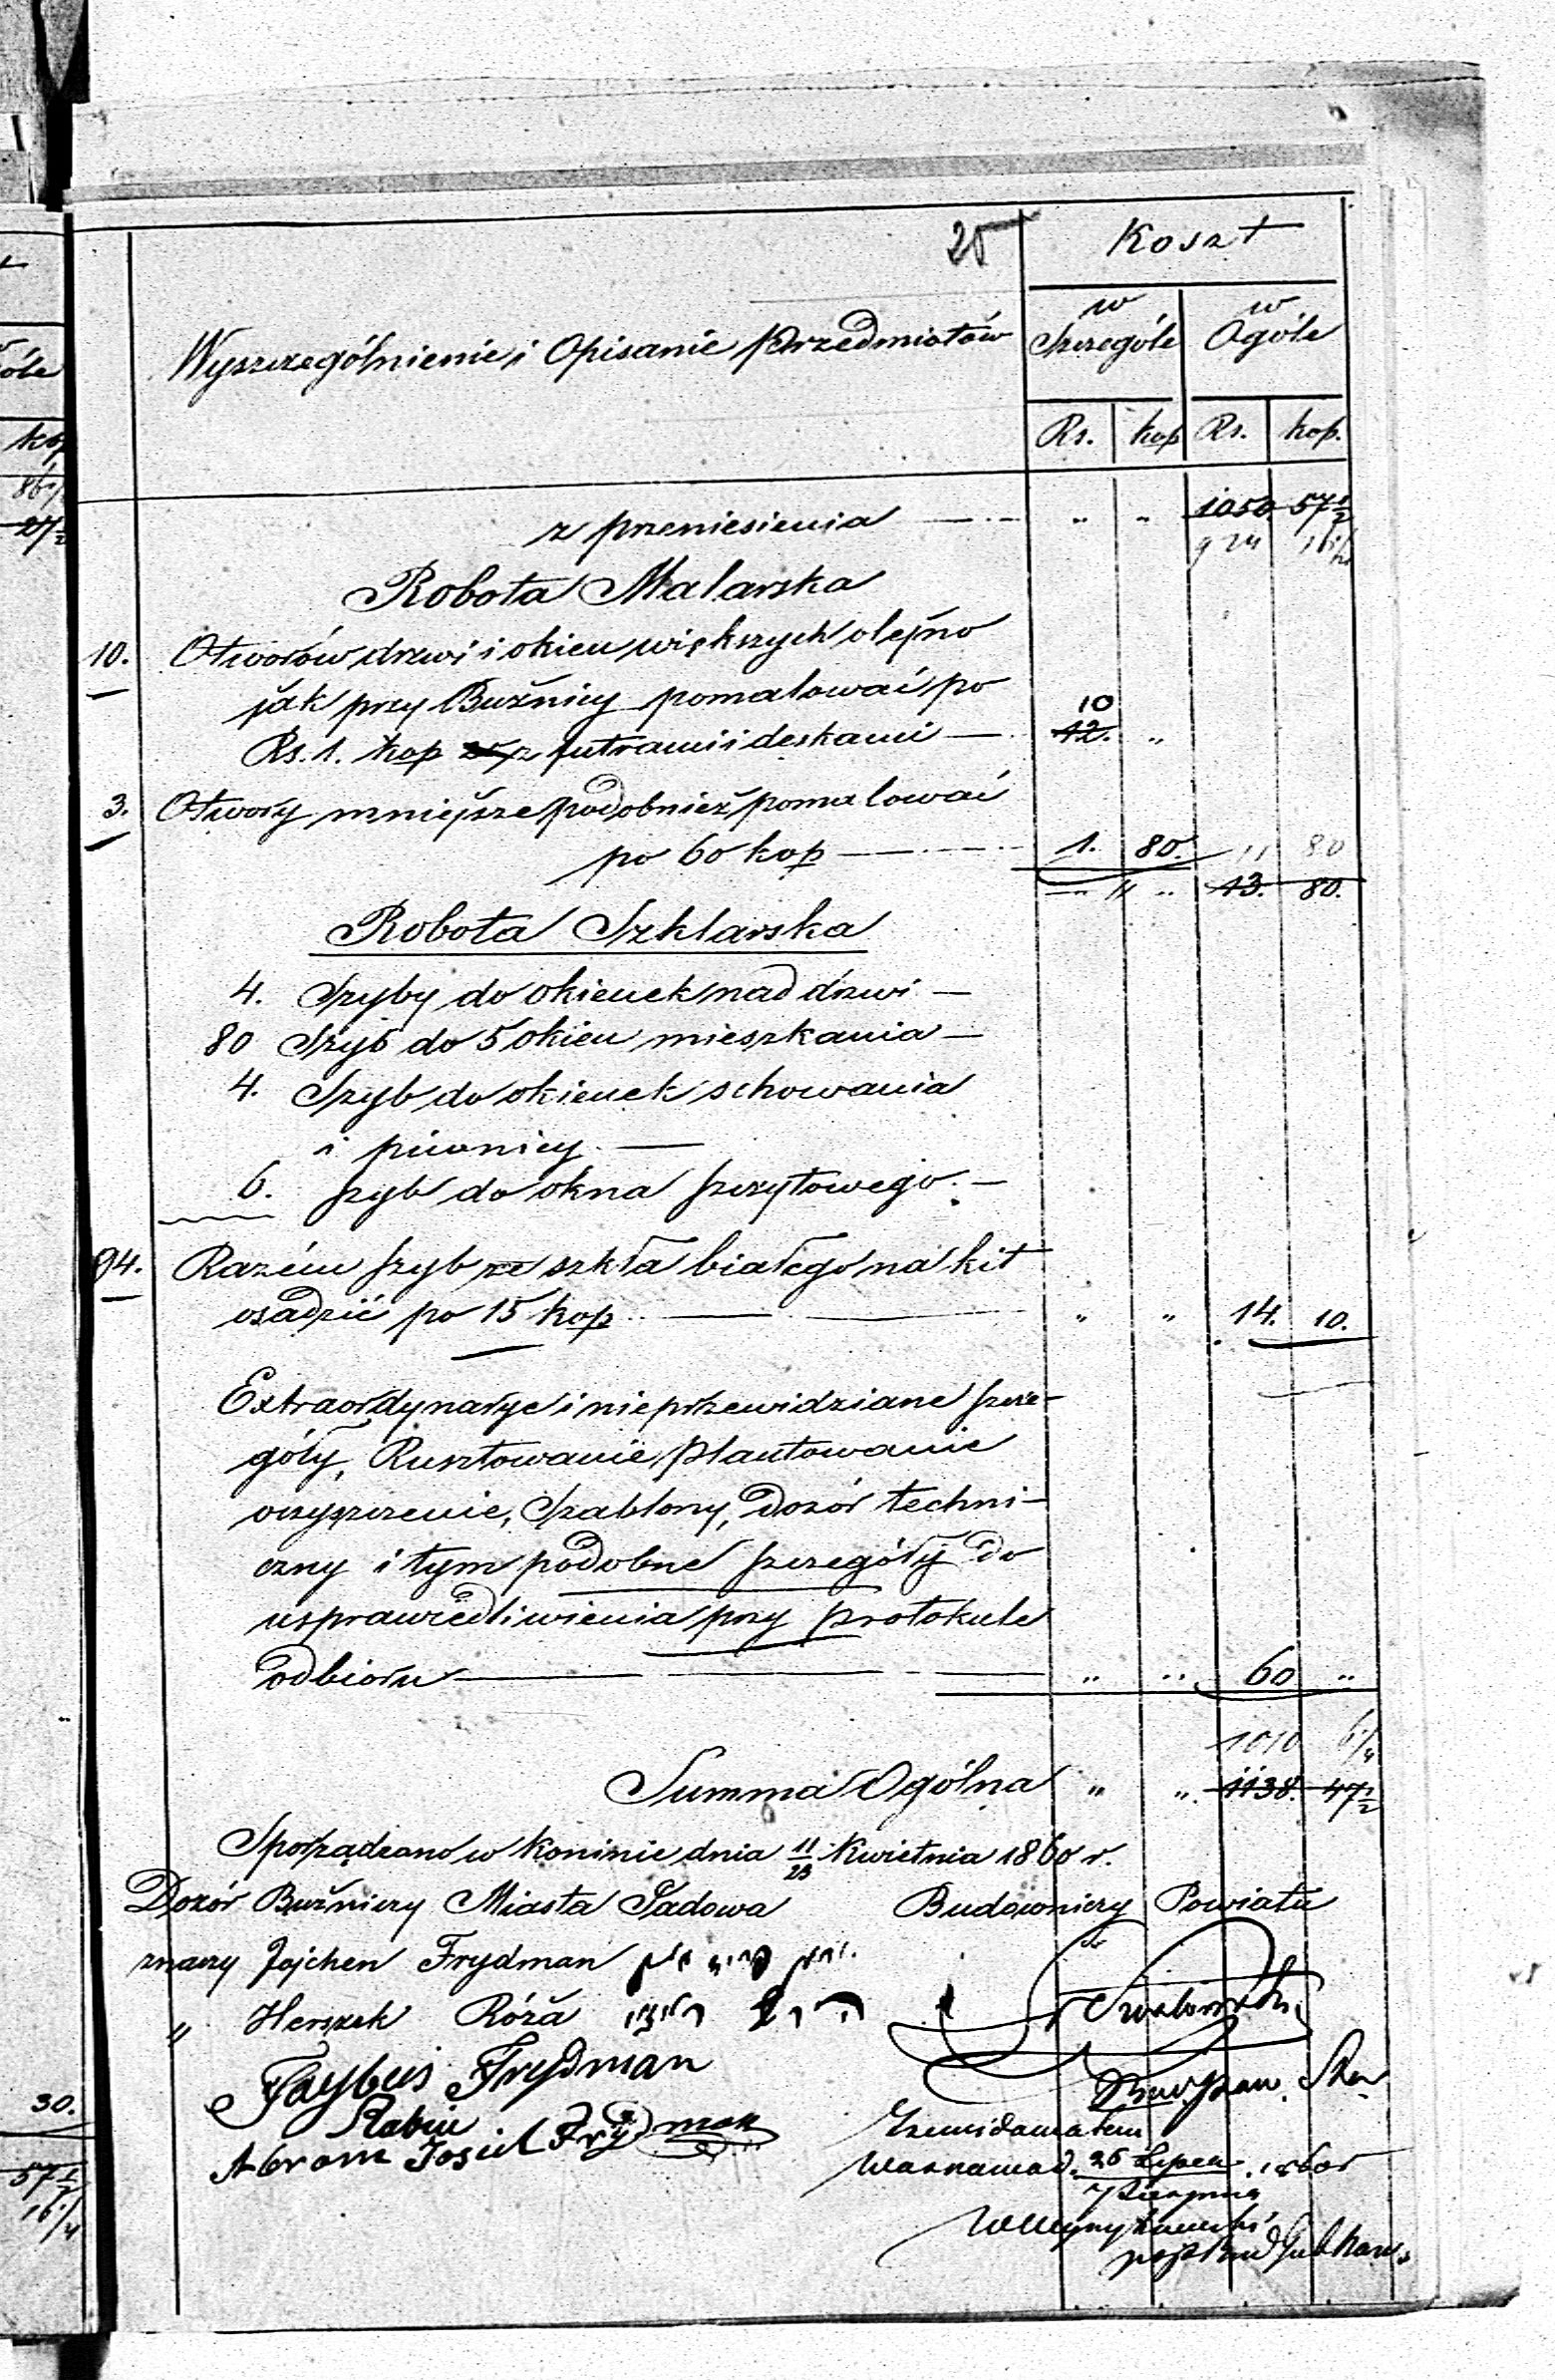 25
Koszt
Wyszczególnienie i Opisanie Przedmiotów
w Szczególe
w Ogóle
Rs. kop Rs. kop.
z przeniesienia — „ „ 1050 57 1/2
924 16 1/4
Robota Malarska
10. Otworów drzwi i okien większych olejno
jak przy Bużnicy pomalować po 10
Rs. 1. kop z futrami i deskami — 12. „
3. Otwory mniejsze podobnież pomalować
po 60 kop — 1. 80. 11 80
„ „ 13. 80.
Robota Szklarska
4. Szyby do okienek nad drzwi —
80 Szyb do 5 okien mieszkania —
4. Szyb do okienek schowania
i piwnicy —
6. szyb do okna szczytowego. —
94. Razem szyb ze szkła białego na kit
osadzić po 15 kop — „ „ 14. 10.
Extraordynarye i nieprzewidziane szcze-
góły, Rusztowanie, plantowanie
oczyszczenie, Szablony, Dozór techni-
czny i tym podobne szczegóły do
usprawiedliwienia przy protokule
odbioru — „ „ 60 „
1010 6 1/4
Summa Ogólna „ „ 1138. 47 1/2
Sporządzono w Koninie dnia 11/23 Kwietnia 1860 r.
Dozór Bużniczy Miasta Sadowa Budowniczy Powiatu
znaczy Jojchen Frydman
„ Herszek Róża
Faybuś Frydman
Rabin
Abram Josiel Frydman
26 Lipca 1860r
30.
57 1/2
16 1/4